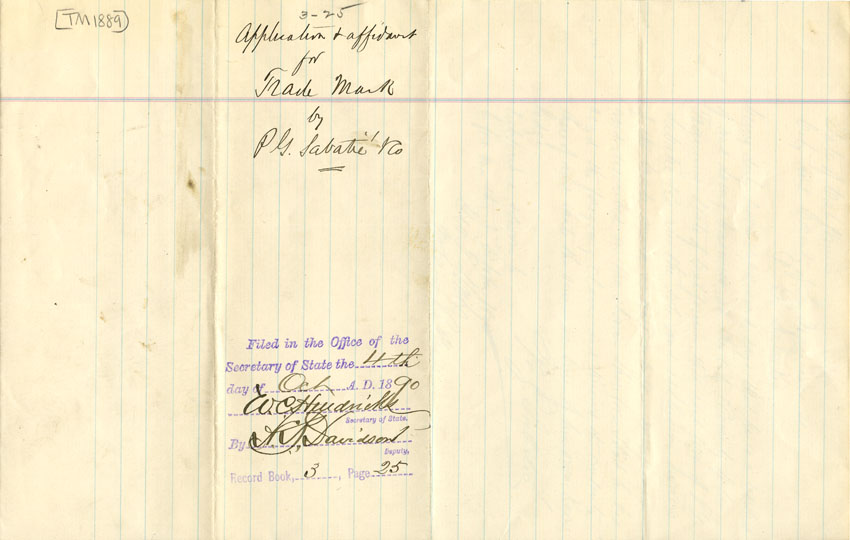 [TM1889]
3-25
Application & affidavit
for
Trade Mark
by
P. G. Sabatié & Co
Filed in the Office of the
Secretary of State the 4th
day of Oct A. D. 1890
W. C. Hendricks
Secretary of State.
By Davidson
Deputy.
Record Book, 3, Page 25